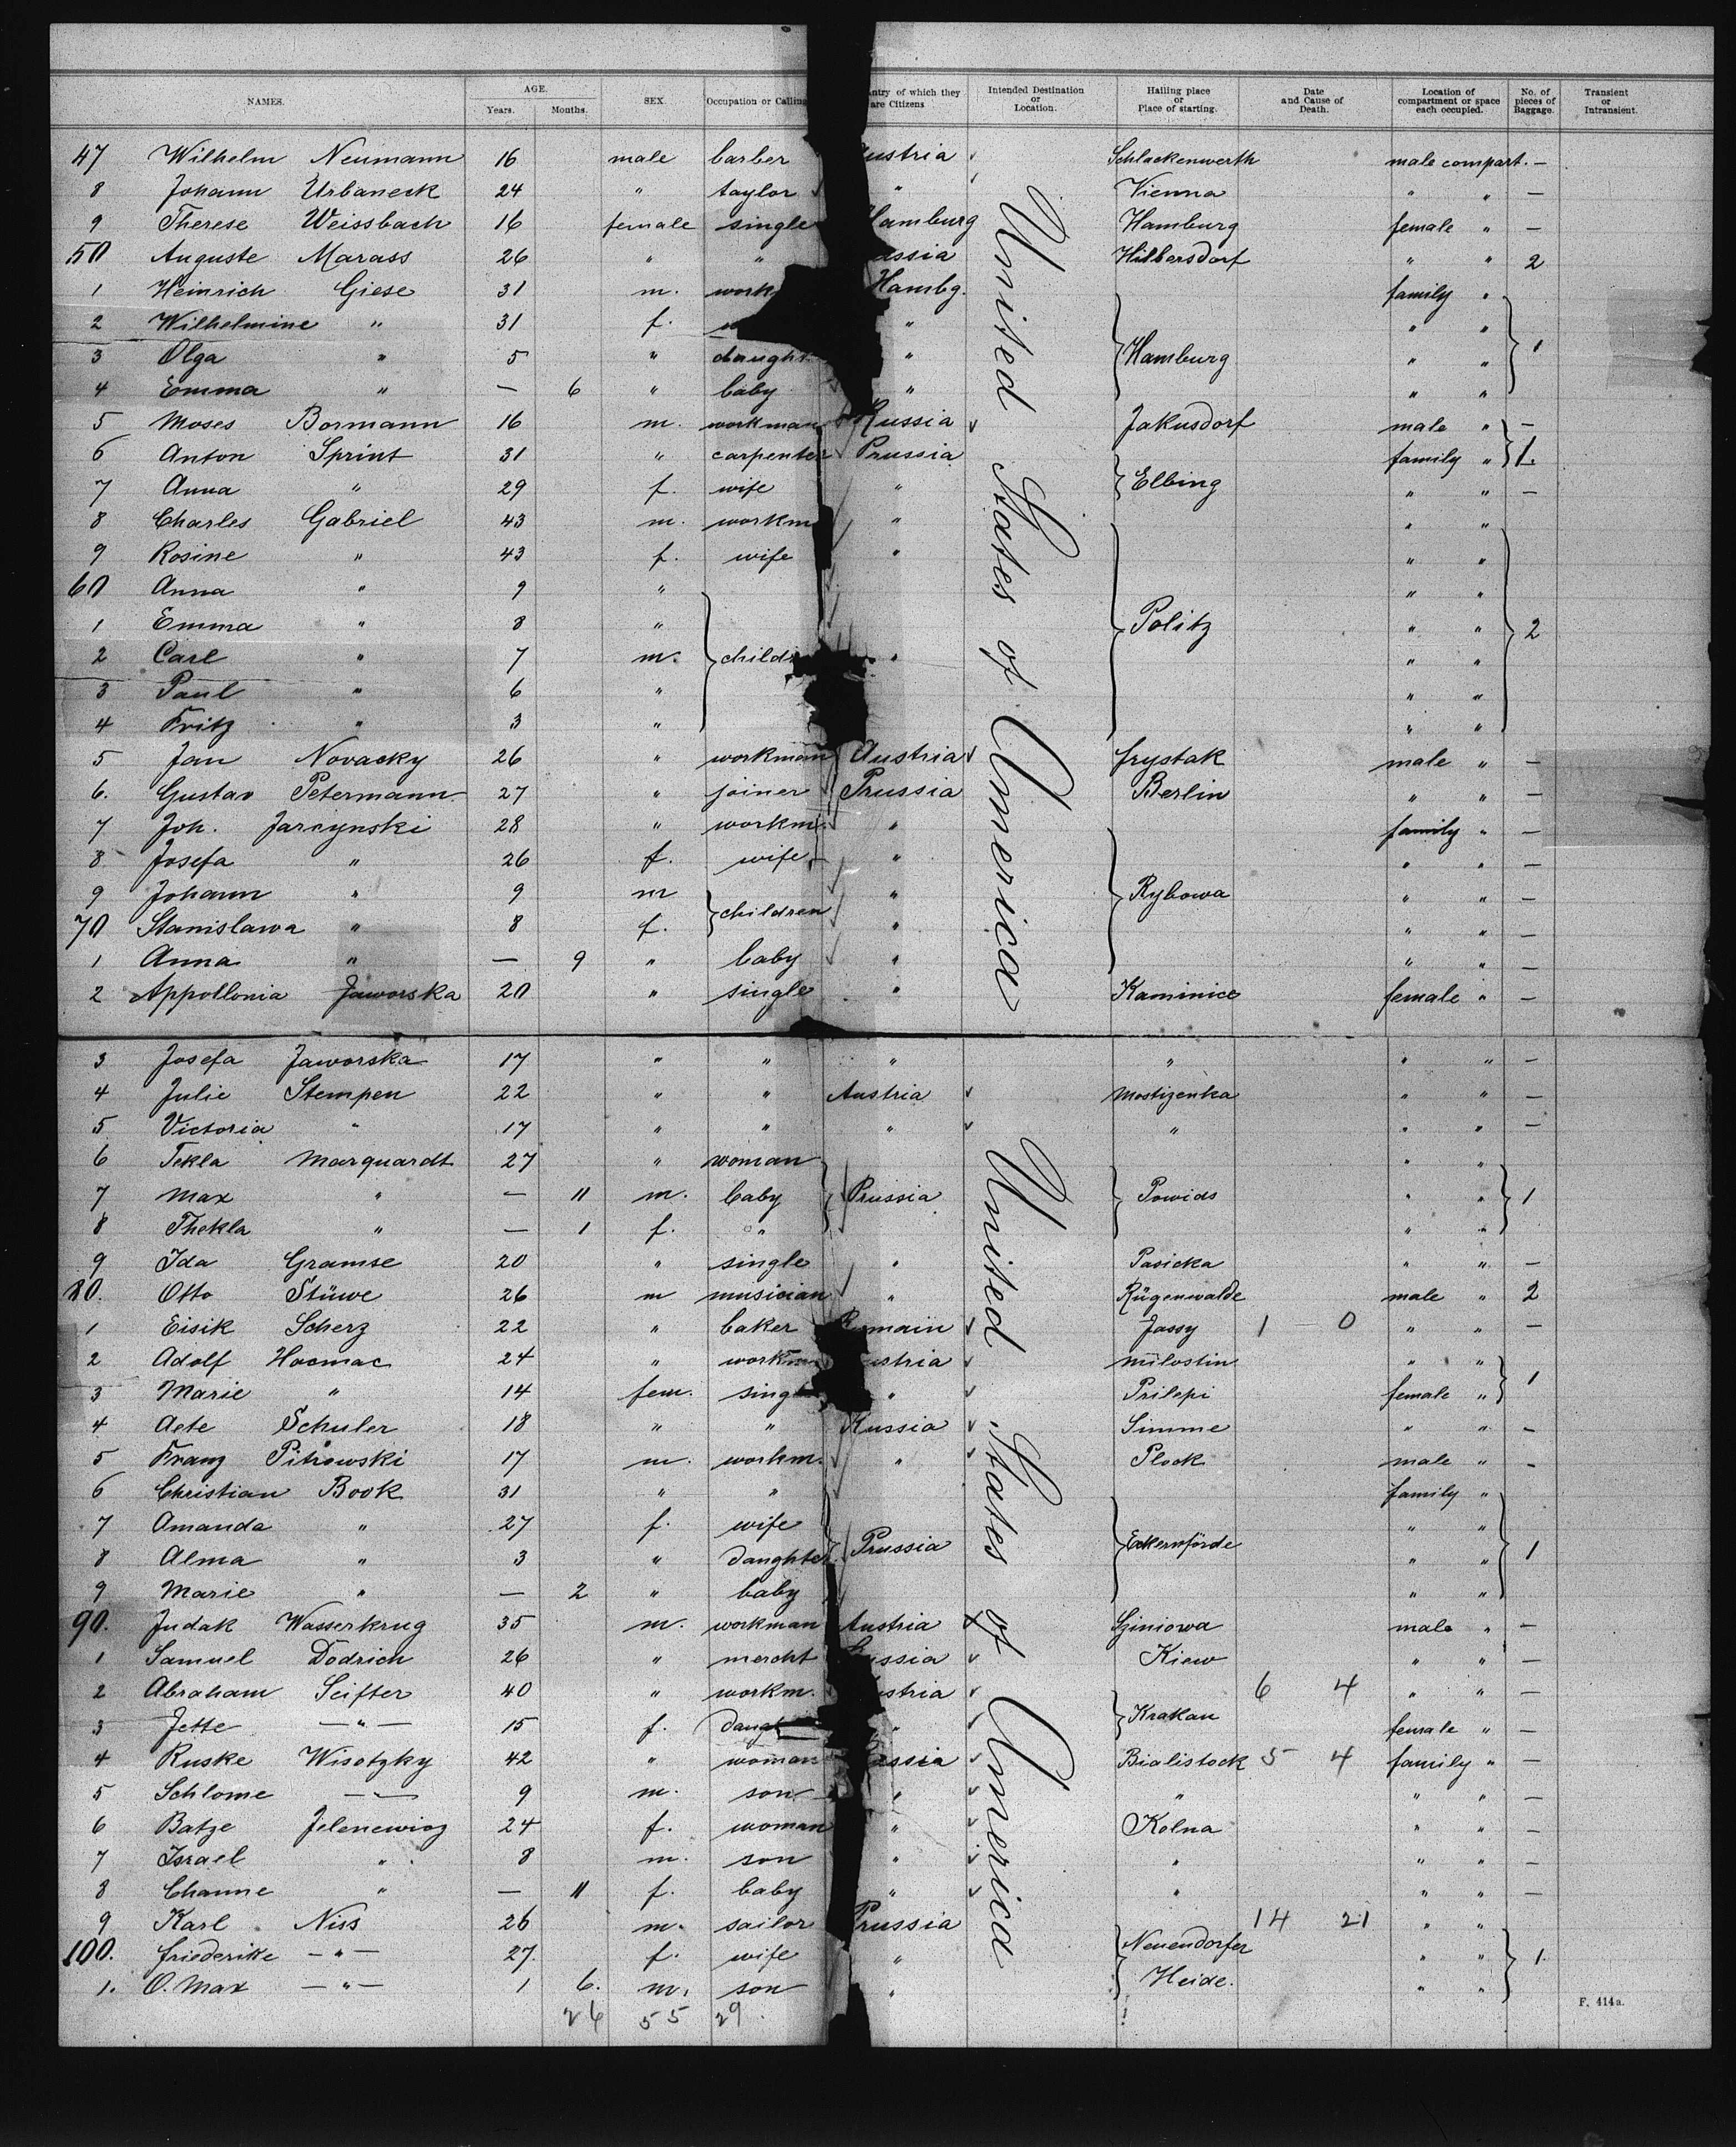 NAMES. AGE. Years. Months. SEX. Occupation or Calling ntry of which they are Citizens Intended Destination or Location. Hailing place or Place of starting. Date and Cause of Death. Location of compartment or space each occupied. No. of pieces of Baggage. Transient or Intransient.
47 Wilhelm Neumann 16 male barber ustria Schlackenwerth male compart. —
8 Johann Urbaneck 24 " taylor " Vienna " " —
9 Therese Weissbach 16 female single Hamburg Hamburg female " —
50 Auguste Marass 26 " " ussia Hilbersdorf " " 2
1 Heinrich Giese 31 m. work Hambg. family "
2 Wilhelmine " 31 f. w " " "
3 Olga " 5 " daught " Hamburg " " 1
4 Emma " — 6 " baby " " "
5 Moses Bormann 16 m. workman Russia Jakusdorf male " —
6 Anton Sprint 31 " carpenter Prussia family " 1.
7 Anna " 29 f. wife " Elbing " " —
8 Charles Gabriel 43 m. workm " " "
9 Rosine " 43 f. wife " " "
60 Anna " 9 " " "
1 Emma " 8 " Politz " " 2
2 Carl " 7 m. childr " " "
3 Paul " 6 " " "
4 Fritz " 3 " " "
5 Jan Novacky 26 " workman Austria Frystak male " —
6. Gustav Petermann 27 " joiner Prussia Berlin " " —
7 Joh. Jarcynski 28 " workm. " family " —
8 Josefa " 26 f. wife " " " —
9 Johann " 9 m " Rybowa " " —
70 Stanislawa " 8 f. children " " " —
1 Anna " — 9 " baby " " " —
2 Appollonia Jaworska 20 " single " Kaminice female " —
United States of America
3 Josefa Jaworska 17 " " " " " " —
4 Julie Stempen 22 " " Austria Mostizenka " " —
5 Victoria " 17 " " " " " " —
6 Tekla Marquardt 27 " woman " "
7 Max " — 11 m. baby Prussia Powids " " 1
8 Thekla " — 1 f. " " "
9 Ida Gramse 20 " single " Pasicka " " —
80. Otto Stüwe 26 m musician " Rügenwalde male " 2
1 Eisik Scherz 22 " baker Romain Jassy 1 — 0 " " —
2 Adolf Hocmac 24 " workm ustria Milostin " "
3 Marie " 14 fem. sing " Prilepi female " 1
4 Aete Schuler 18 " " Russia Simme " " —
5 Franz Pitrowski 17 m. workm. " Plock male " —
6 Christian Book 31 " " family "
7 Amanda " 27 f. wife " "
8 Alma " 3 " daughter Prussia Eckernförde " " 1
9 Marie " — 2 " baby " "
90. Judak Wasserkrug 35 m. workman Austria Giniowa male " —
1 Samuel Dodrich 26 " mercht ussia Kiew " " —
2 Abraham Seifter 40 " workm. ustria 6 4 " " —
3 Jette — " — 15 f. daugh " Krakau female " —
4 Ruske Wisotzky 42 " woman ussia Bialistock 5 4 family " —
5 Schlome — " — 9 m. son " " " " —
6 Batze Jelenewicz 24 f. woman " Kolna " " —
7 Israel " 8 m. son " " " " —
8 Channe " — 11 f. baby " " " " —
9 Karl Niss 26 m. sailor Prussia 14 21 " "
100. Friederike — " — 27. f. wife " Neuendorfer " " 1.
1. O. Max — " — 1 6. m. son " Heide. " "
United States of America
26 55 29.
F. 414a.